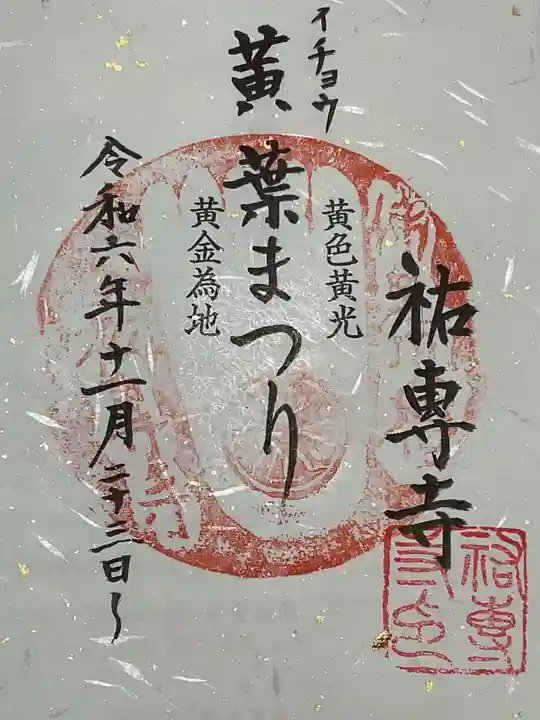 祐專寺
黄色黄光
イチョウ
黄葉まつり
黄金為地
令和六年十一月二十三日〜
祐專寺印